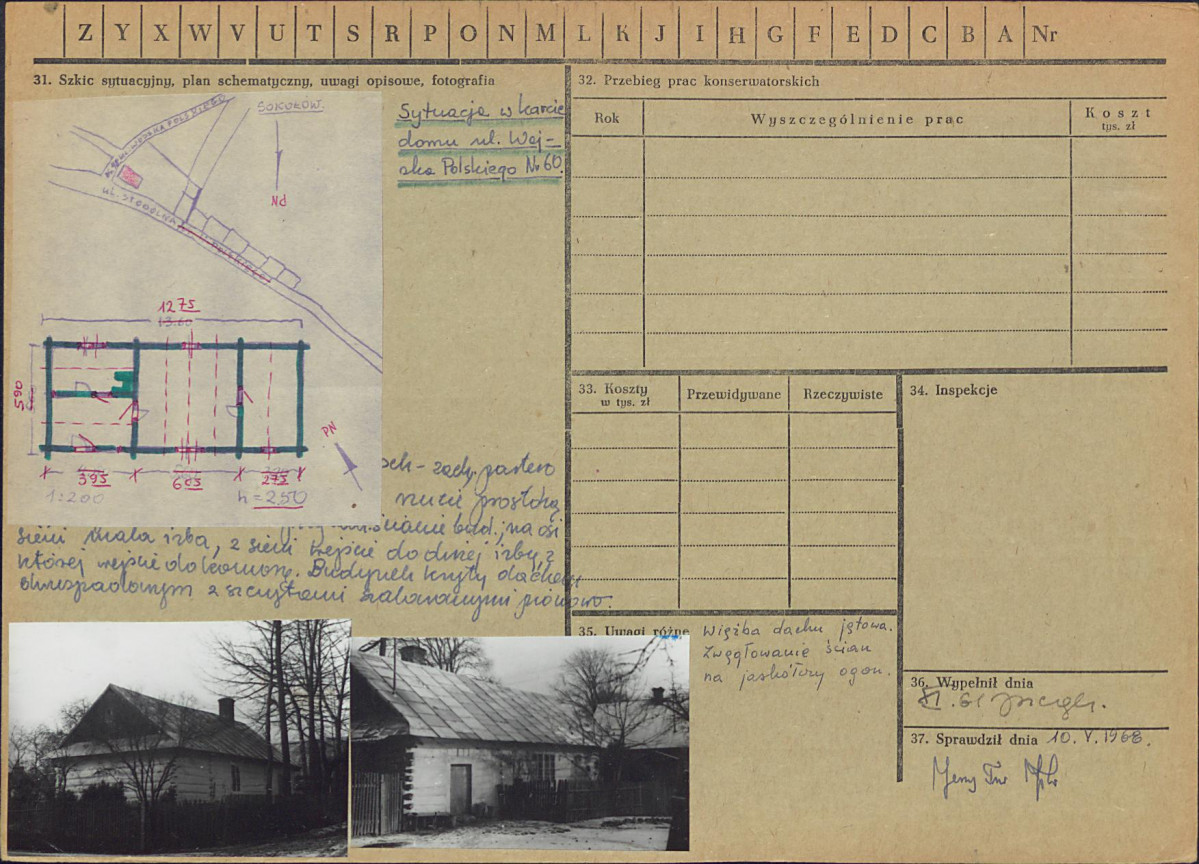 Z Y X W V U T S R P O N M L K J I H G F E D C B A Nr
31. Szkic sytuacyjny, plan schematyczny, uwagi opisowe, fotografia
SOKOŁÓW.
WOJSKA POLSKIEGO
ul. STODOLNA
Nd
Sytuacja w karcie
domu ul. Woj-
ska Polskiego No 60.
1275
13.60
590
PN
395
605
275
1:200
h = 250
zach, parterowy
rzucie prostokąta
bud.; na osi
sieni mała izba, z sieni wejście do dużej izby, z
której wejście do komory. Budynek kryty dachem
dwuspadowym z szczytami szalowanymi pionowo.
32. Przebieg prac konserwatorskich
Rok
Wyszczególnienie prac
Koszt
tys. zł
33. Koszty
w tys. zł
Przewidywane
Rzeczywiste
34. Inspekcje
35. Uwagi różne
Więźba dachu jętowa.
Zwęgłowanie ścian
na jaskółczy ogon.
36. Wypełnił dnia
37. Sprawdził dnia 10.V.1968.